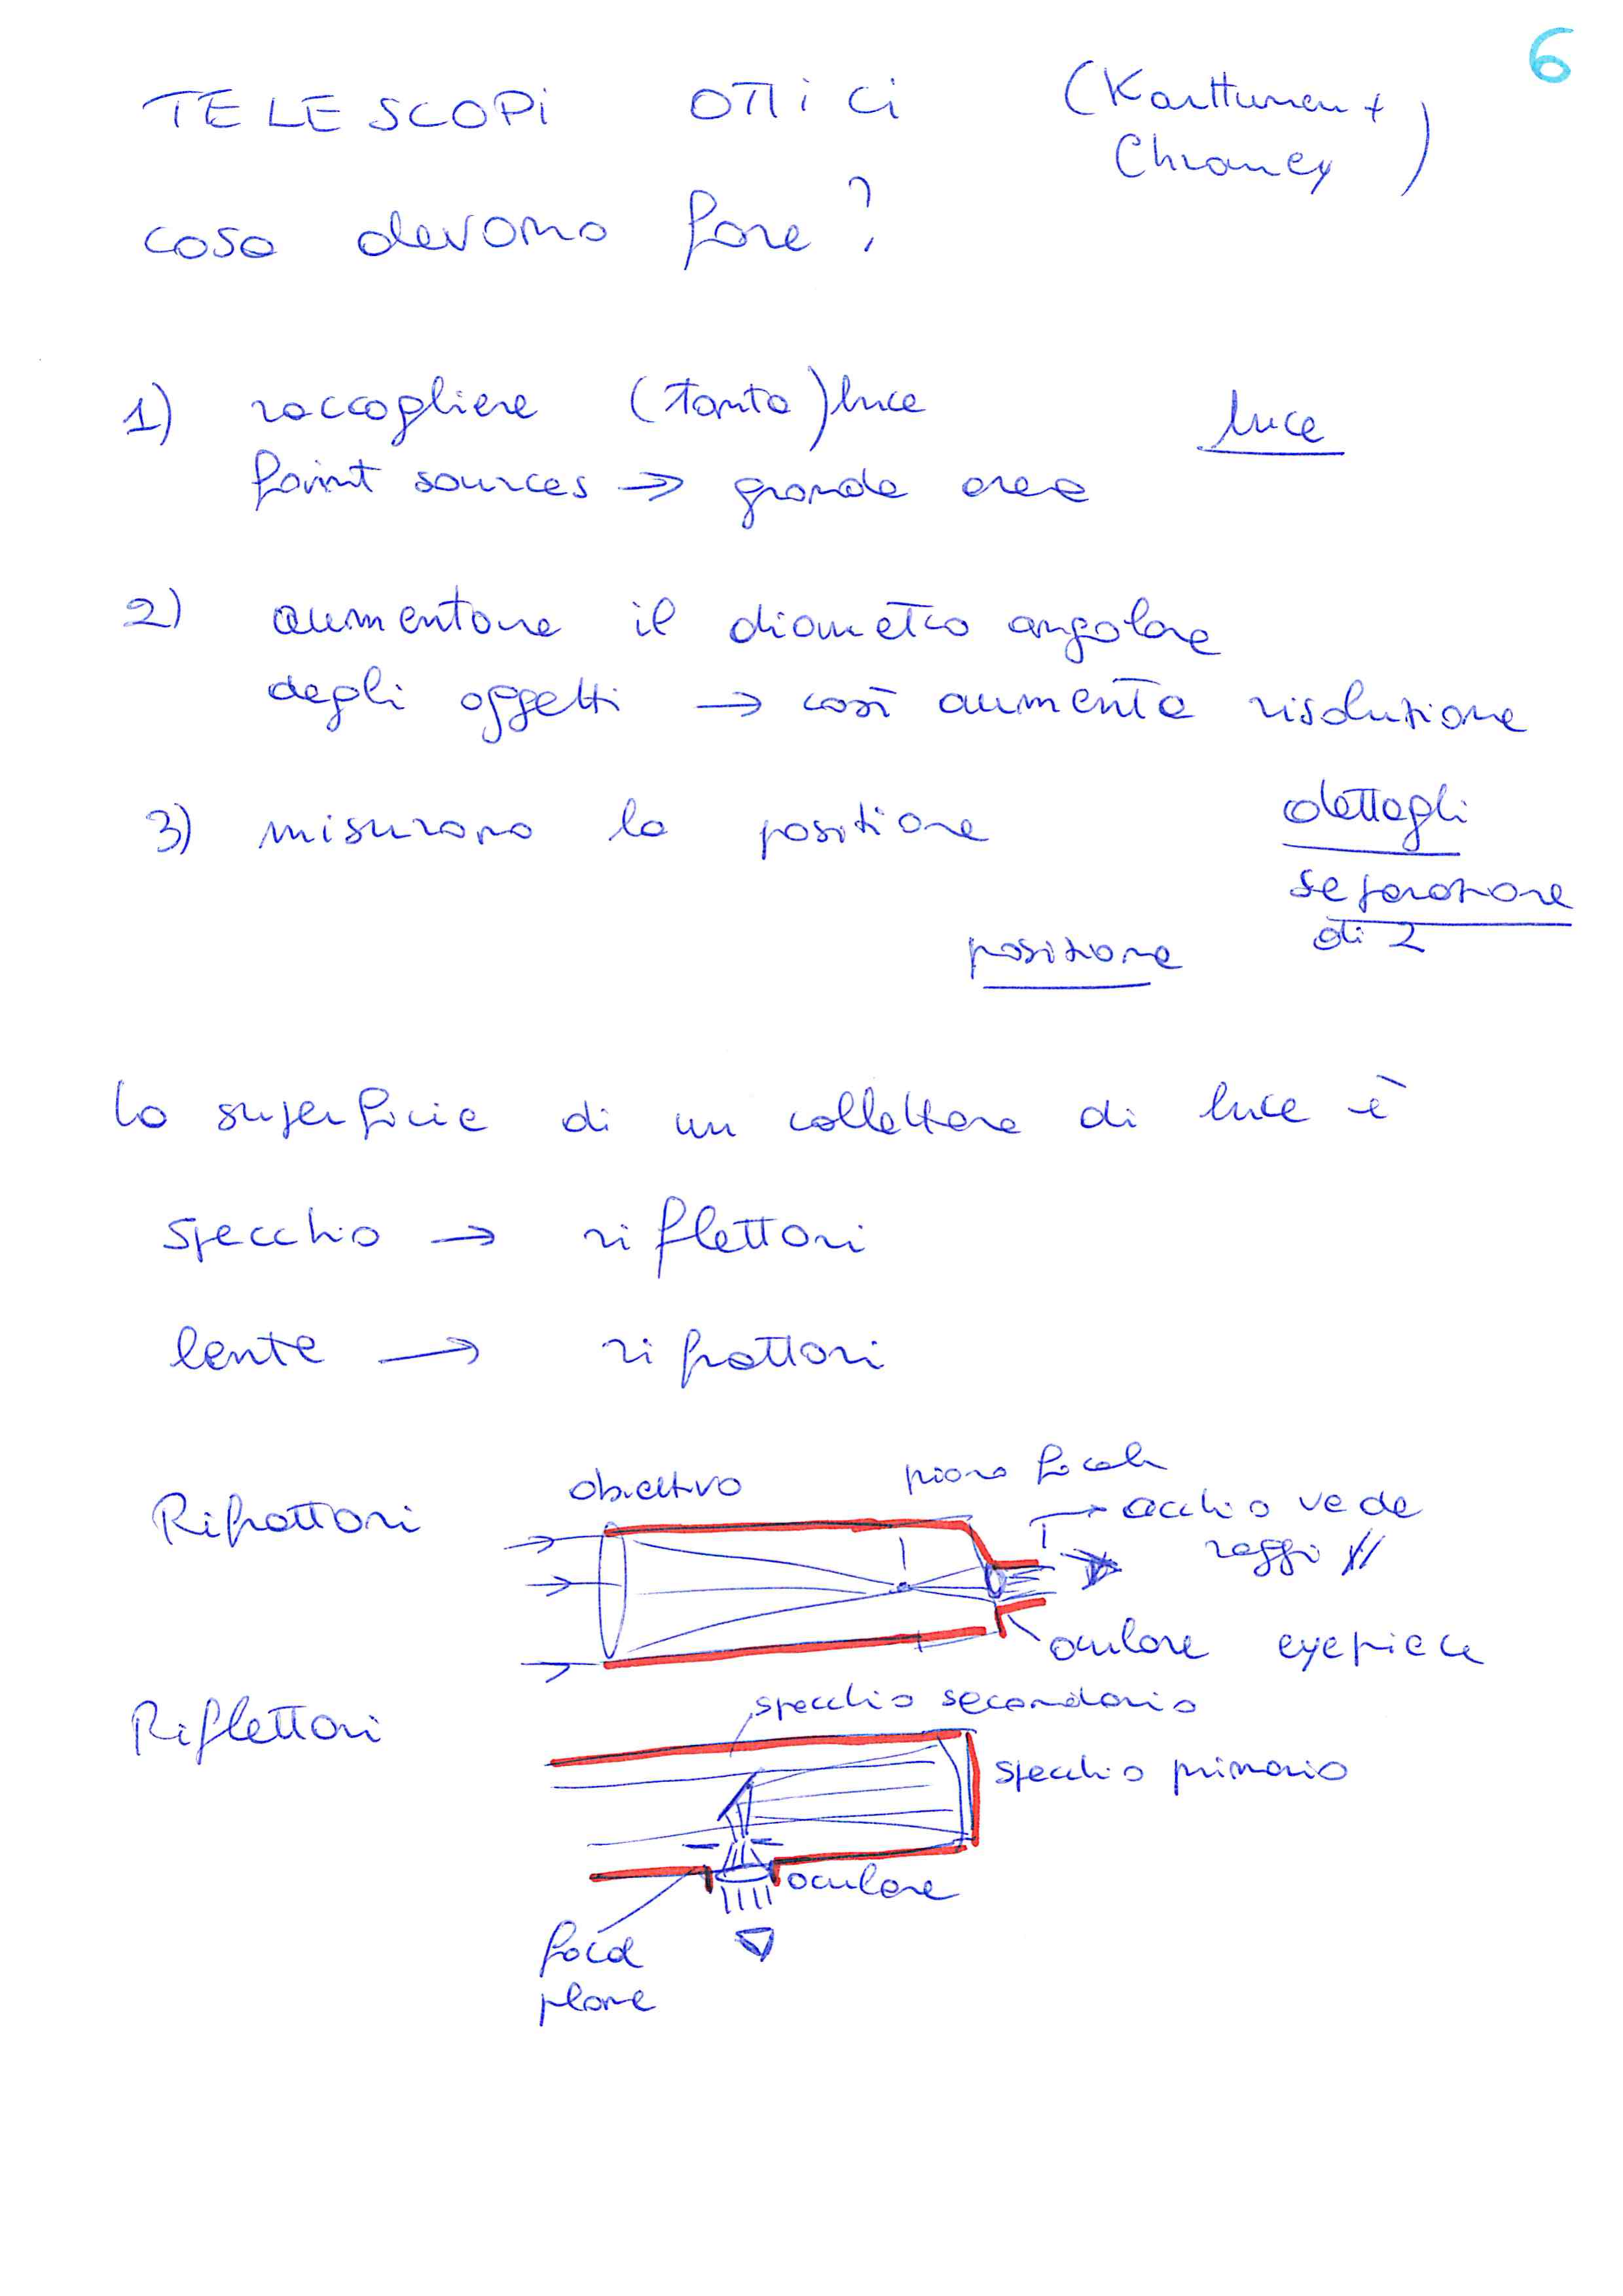 6
TELESCOPI OTTICI (Karttunen +
Chromey)
cosa devono fare?
1) raccogliere (tanta) luce
luce
faint sources → grande area
2) aumentare il diametro angolare
degli oggetti → così aumenta risoluzione
3) misurano la posizione
dettagli
separazione
di 2
posizione
la superficie di un collettore di luce è
specchio → riflettori
lente → rifrattori
Rifrattori
obiettivo
piano focale
→ occhio vede
raggi //
oculare eyepiece
Riflettori
specchio secondario
specchio primario
oculare
focal
plane